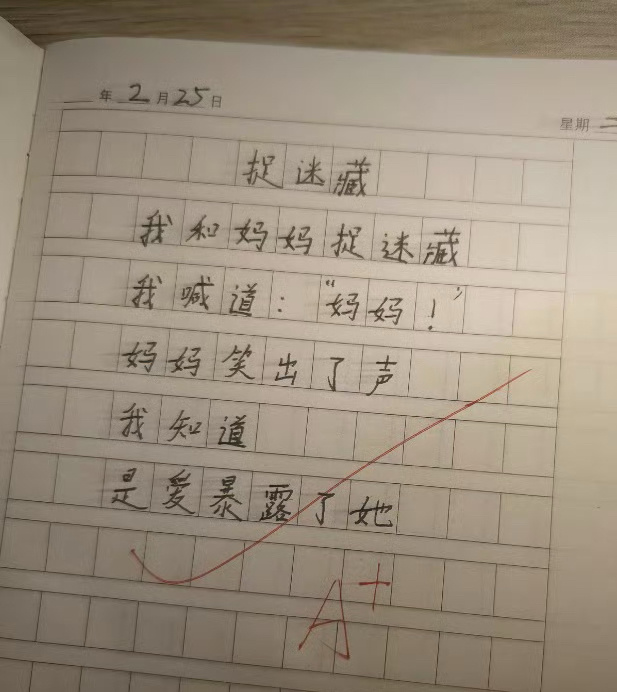 年2月25日
星期二
捉迷藏
我和妈妈捉迷藏
我喊道："妈妈！"
妈妈笑出了声
我知道
是爱暴露了她
A+